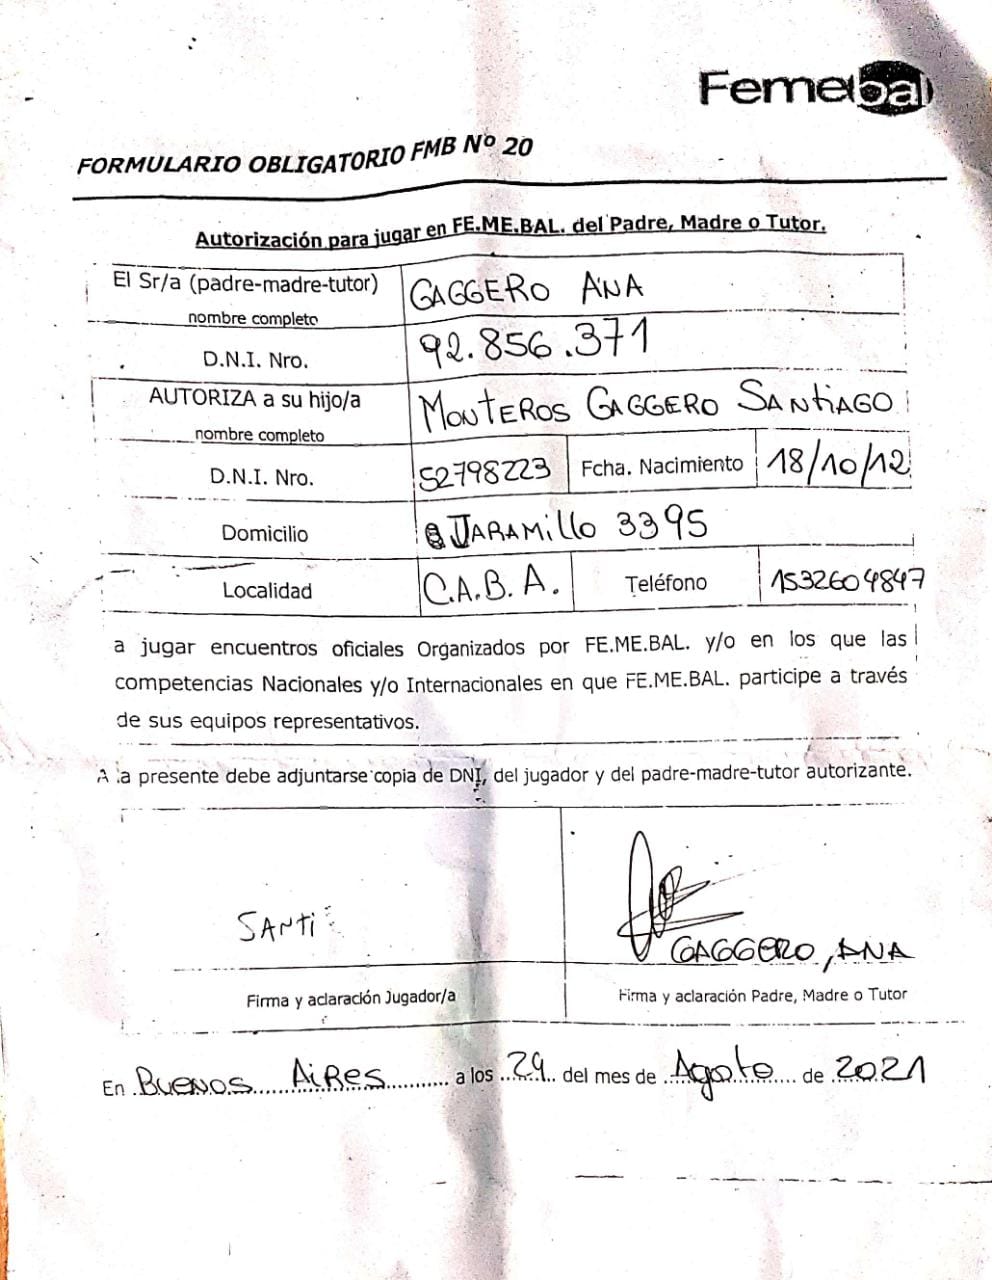 Femebal
FORMULARIO OBLIGATORIO FMB Nº 20
Autorización para jugar en FE.ME.BAL. del Padre, Madre o Tutor.
El Sr/a (padre-madre-tutor) GAGGERO ANA
nombre completo
D.N.I. Nro. 92.856.371
AUTORIZA a su hijo/a MONTEROS GAGGERO SANTIAGO
nombre completo
D.N.I. Nro. 52798223 Fcha. Nacimiento 18/10/12
Domicilio JARAMILLO 3395
Localidad C.A.B.A. Teléfono 1532604847
a jugar encuentros oficiales Organizados por FE.ME.BAL. y/o en los que las
competencias Nacionales y/o Internacionales en que FE.ME.BAL. participe a través
de sus equipos representativos.
A la presente debe adjuntarse copia de DNI, del jugador y del padre-madre-tutor autorizante.
SANTI
GAGGERO, ANA
Firma y aclaración Jugador/a Firma y aclaración Padre, Madre o Tutor
En BUENOS AIRES a los 29 del mes de Agosto de 2021